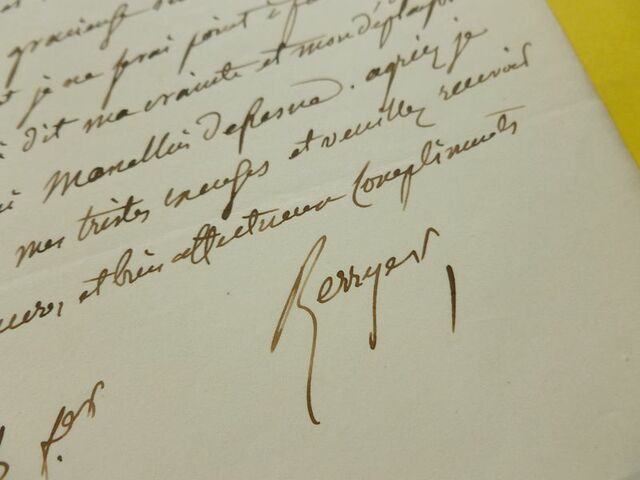 gracieuse
je ne serai point à
dit ma crainte et mon déplaisir
Marcellus defresne. agréez je
mes tristes excuses et veuillez recevoir
et bien affectueux compliments
Berryer
fer